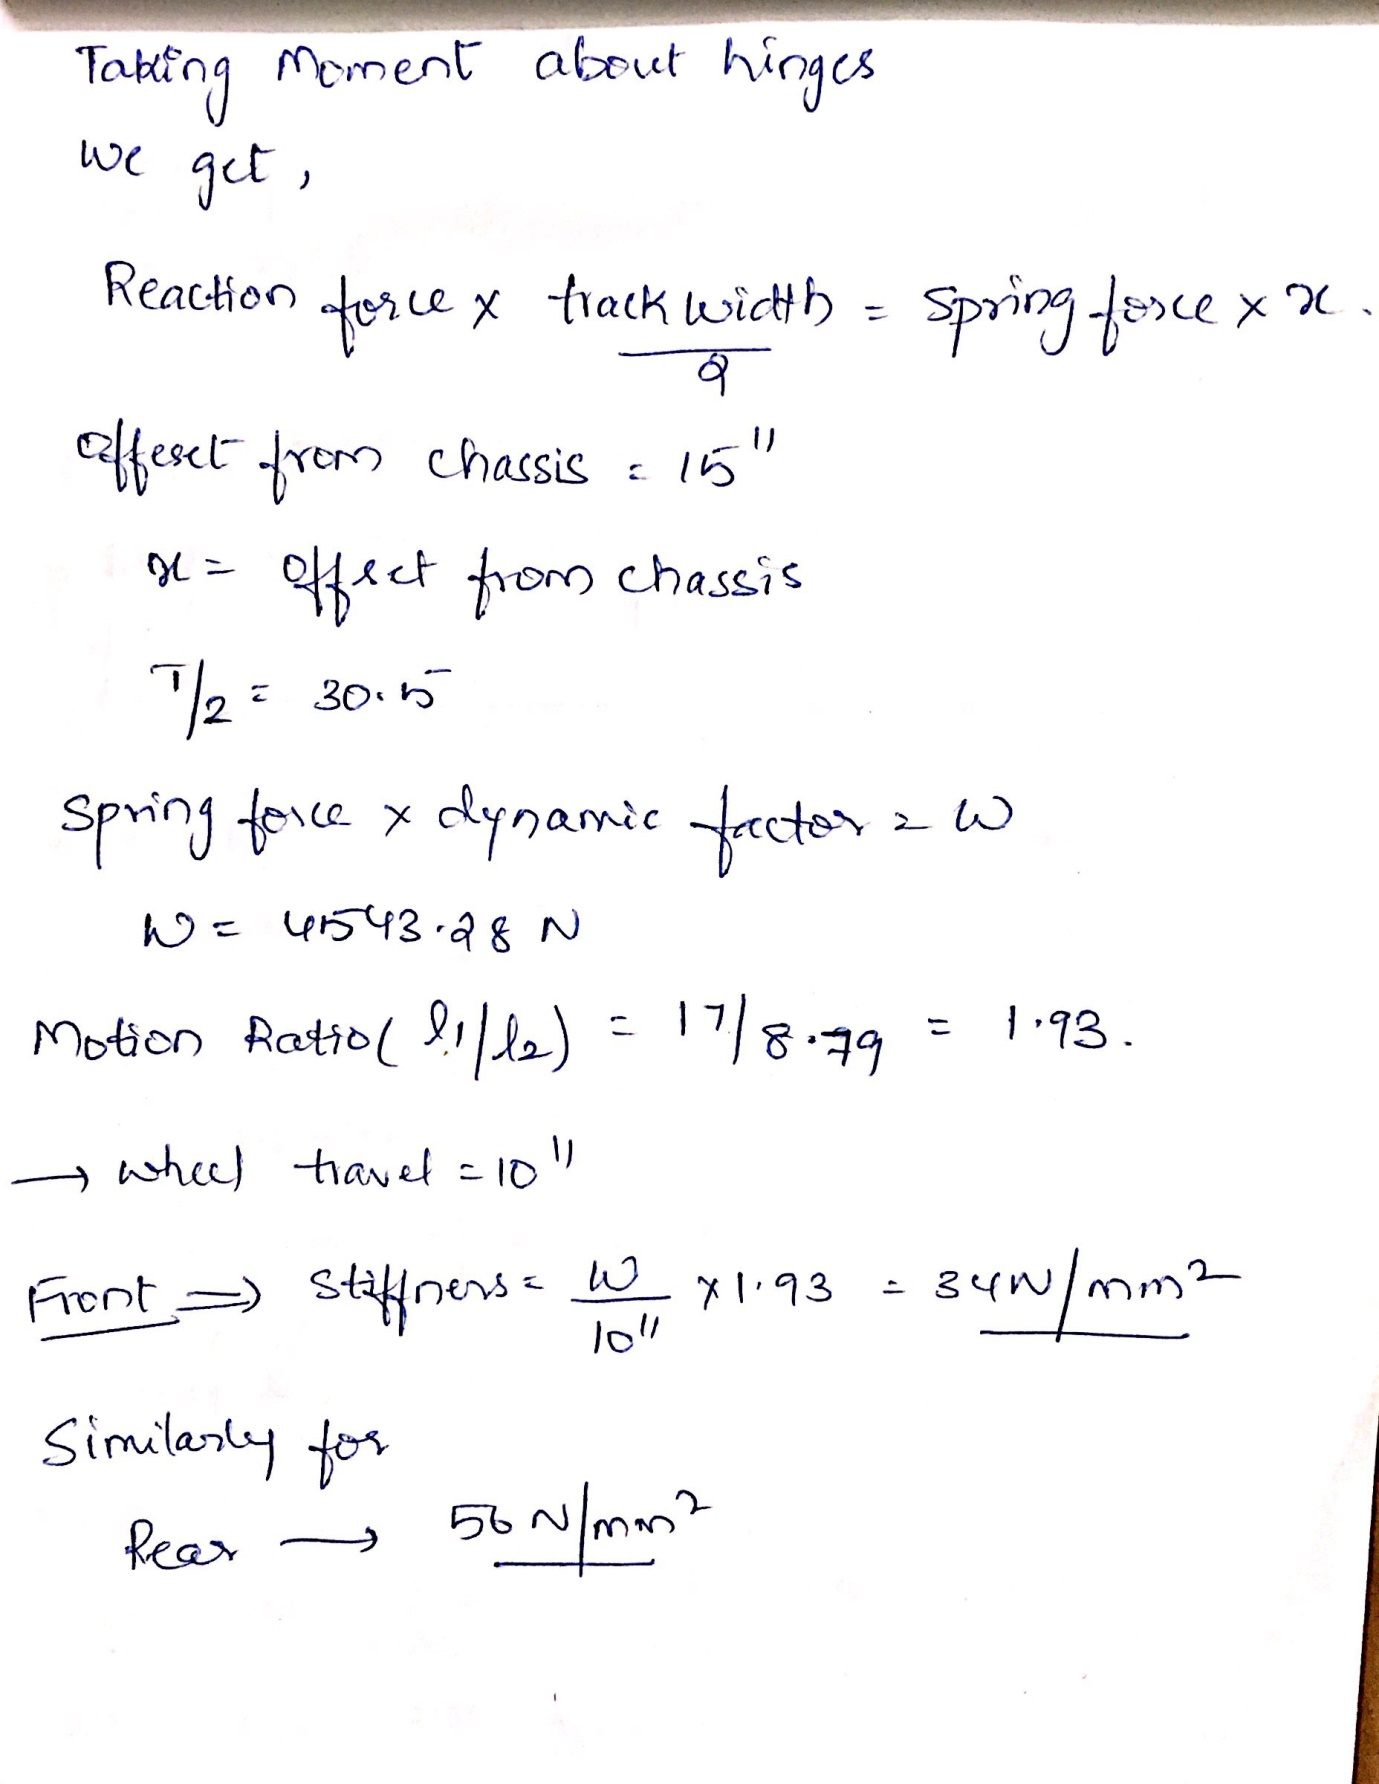 Taking Moment about hinges
we get,
Reaction force x track width = Spring force x x.
2
offeset from chassis = 15"
x = offset from chassis
T/2 = 30.5
Spring force x dynamic factor = W
W = 4543.28 N
Motion Ratio( l1/l2) = 17/8.79 = 1.93.
→ wheel travel = 10"
Front ⇒ Stiffness = W x 1.93 = 34N/mm²
10"
Similarly for
Rear → 56 N/mm²